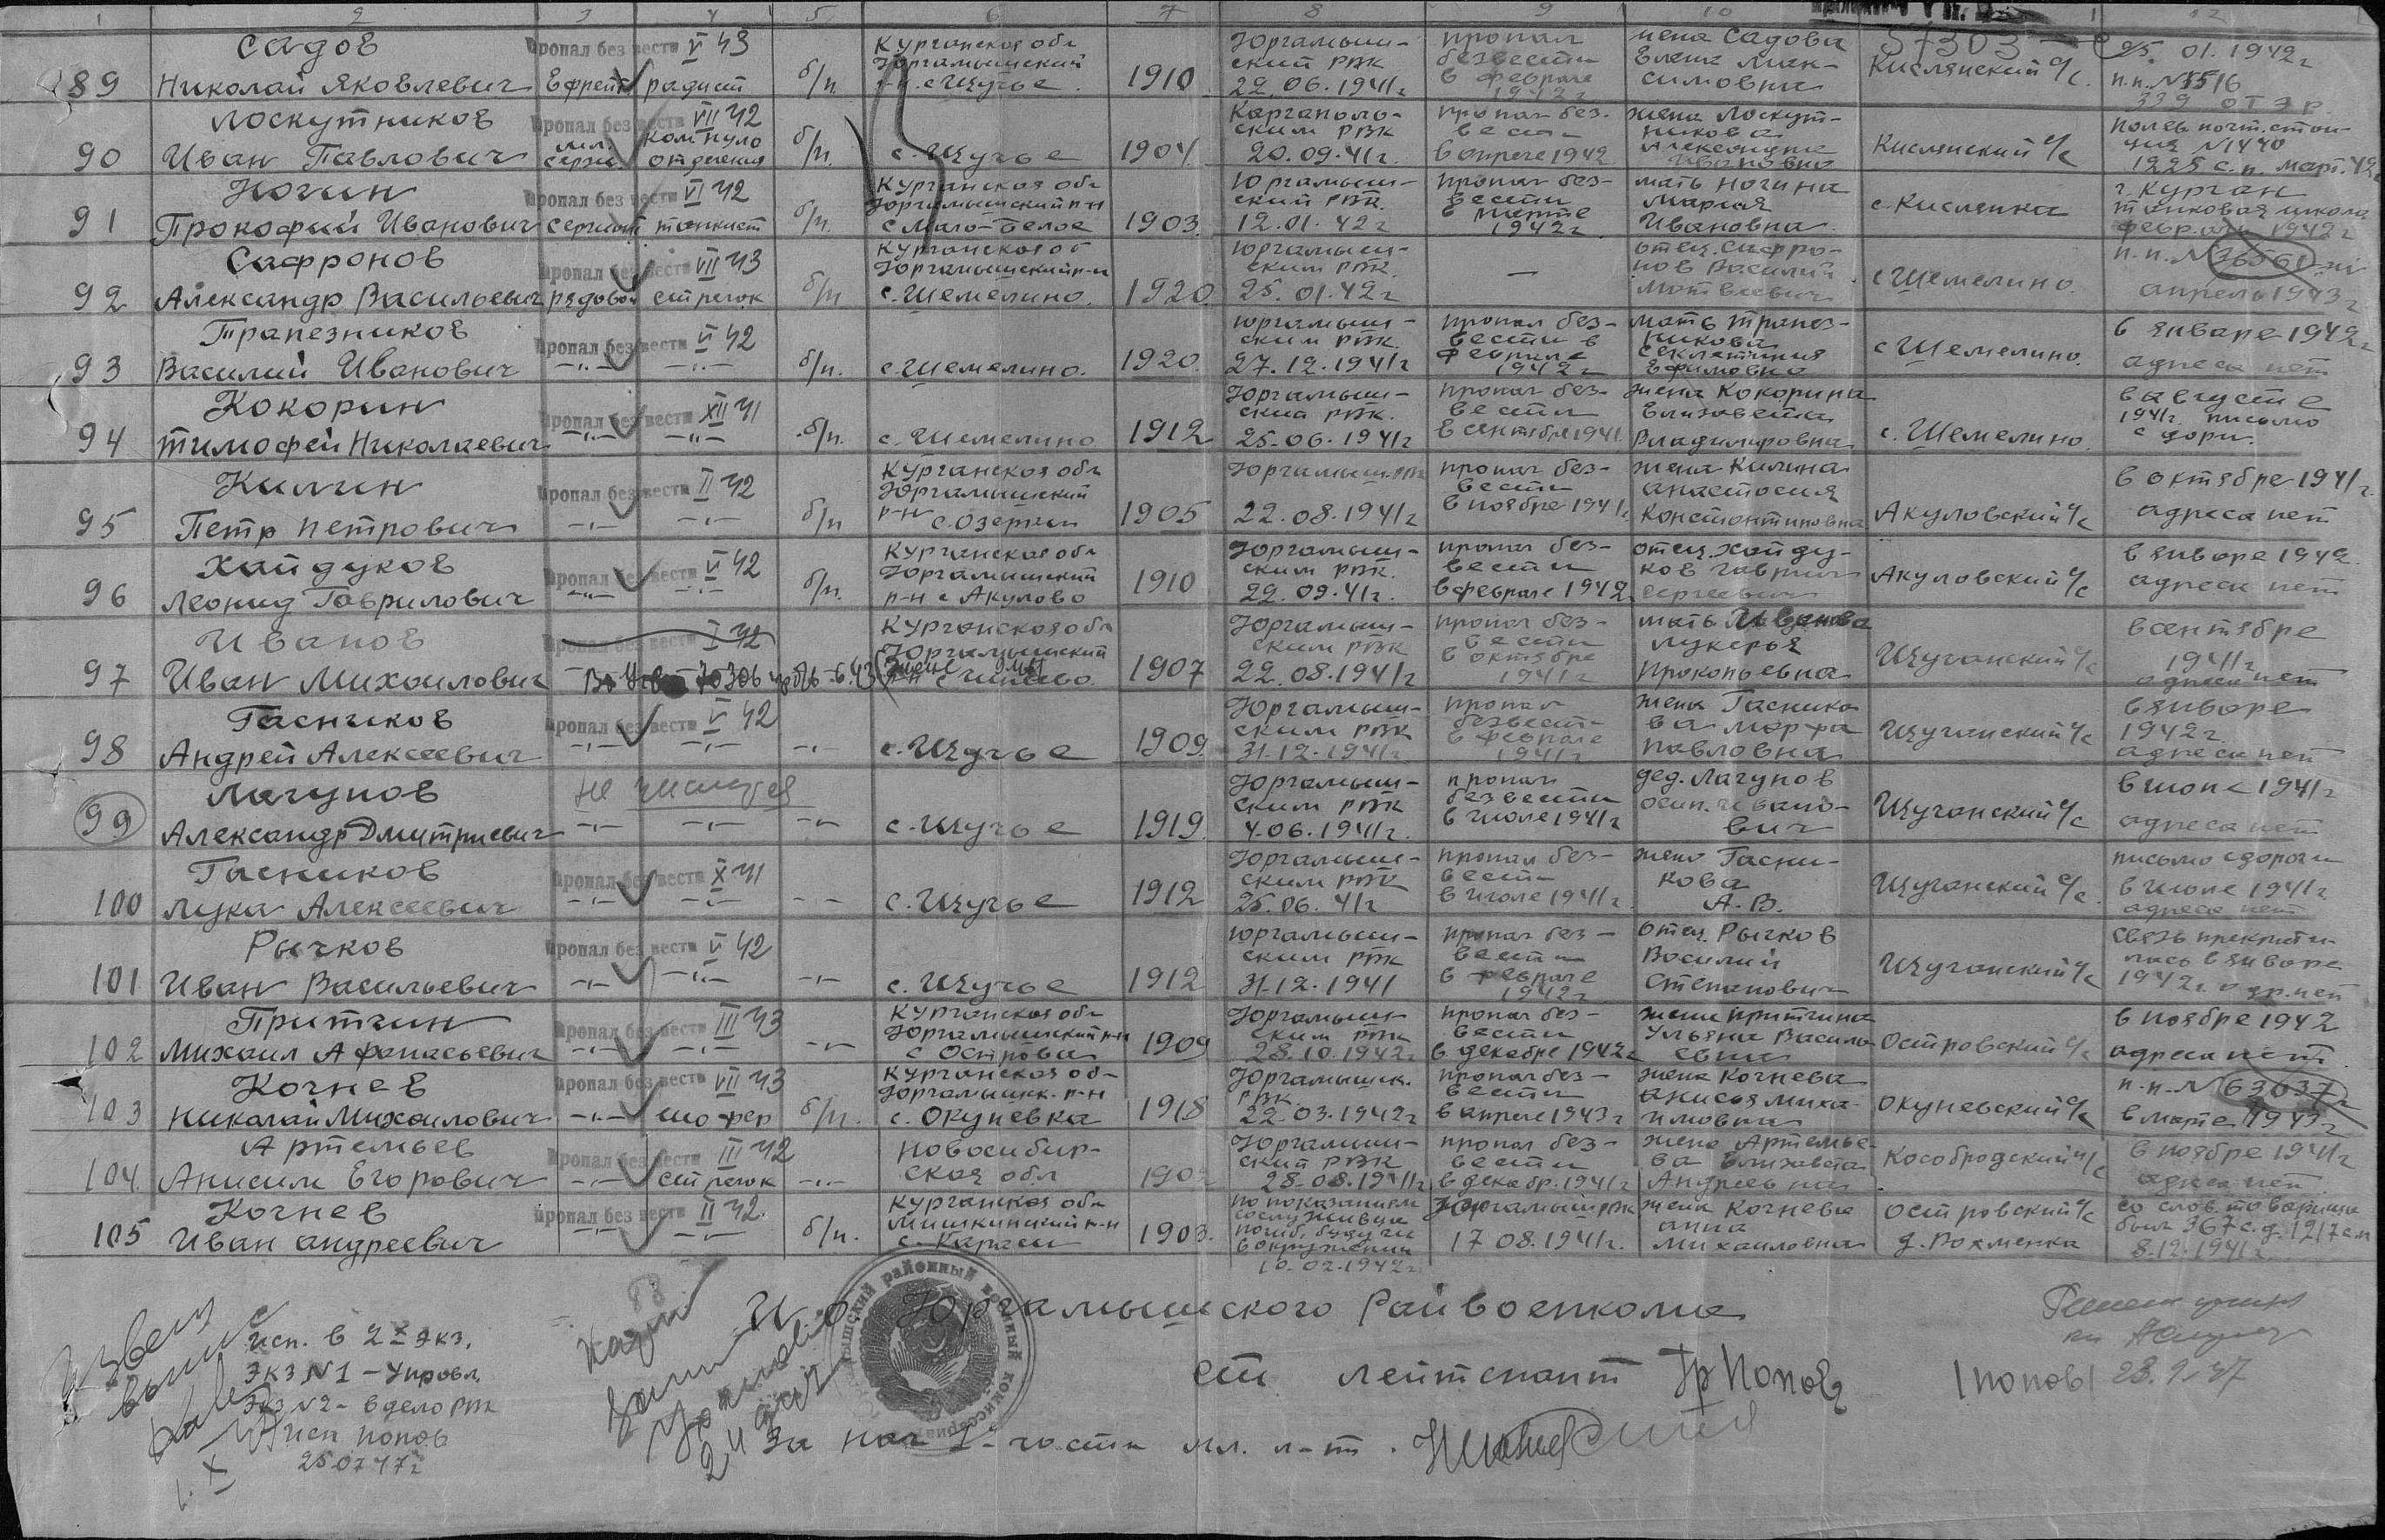 1 2 3 4 5 6 7 8 9 10 12
57303
89 Садов Николай Яковлевич
Пропал без вести V 43
Ефрейт радист
б/п.
Курганская обл Юргамышский р-н. с Щучье
1910
Юргамышский РВК 22.06.1941г
пропал безвести в феврале 1942г
жена Садова Елена Максимовна
Кислянский с/с.
01.1942г п.п. №1516 339 ОТЭР
90 Лоскутников Иван Павлович
Пропал без вести VII 42
мл. серж. ком пуло отделения
б/п.
с. Щучье
1904
Каргапольским РВК 20.09.41г.
пропал без вести в апреле 1942
жена Лоскутникова Александра Ивановна
Кислянский с/с
полев. почт. станция №1440 1225 с.п. март. 42г
91 Ногин Прокофий Иванович
Пропал без вести VI 42
сержант танкист
б/п.
Курганская обл Юргамышский р-н с Мало-Белое
1903
Юргамышский РВК 12.01.42г
пропал без вести в марте 1942г
мать Ногина Мария Ивановна
с. Кислянка
г. Курган танковая школа февраль 1942г
92 Сафронов Александр Васильевич
Пропал без вести VII 43
рядовой стрелок
б/п
Курганская об Юргамышский р-н с. Шемелино.
1920
Юргамышским РВК. 25.01.42г
—
отец. Сафронов Василий Матвеевич
с Шемелино.
п.п. №36561 апрель 1943г
93 Трапезников Василий Иванович
Пропал без вести VI 42
—"— —"—
б/п.
с. Шемелино.
1920.
Юргамышским РВК. 27.12.1941г
пропал без вести в феврале 1942г
мать Трапезникова Секлетиния Ефимовна
с Шемелино.
в январе 1942г адреса нет
94 Кокорин Тимофей Николаевич
Пропал без вести XII 41
—"— —"—
б/п.
с. Шемелино
1912
Юргамышский РВК. 25.06.1941г
пропал без вести в сентябре 1941.
жена Кокорина Елизавета Владимировна
с. Шемелино.
в августе 1941г письмо с дорги.
95 Килин Петр Петрович
Пропал без вести II 42
—"— —"—
б/п
Курганская обл Юргамышский р-н с. Озерки
1905
Юргамыш. РВК 22.08.1941г
пропал без вести в ноябре 1941г.
жена Килина Анастасия Константиновна
Акуловский с/с
в октябре 1941г. адреса нет
96 Хайдуков Леонид Гаврилович
Пропал без вести V 42
—"— —"—
б/п.
Курганская обл Юргамышский р-н с Акулово
1910
Юргамышским РВК. 22.09.41г.
пропал без вести в феврале 1942
отец. Хайдуков Гаврил Сергеевич
Акуловский с/с
в январе 1942 адреса нет
97 Иванов Иван Михайлович
Пропал без вести I 42
Курганская обл Юргамышский
1907
Юргамышским РВК 22.08.1941г
пропал без вести в октябре 1941г
мать Иванова Лукерья Прокопьевна
Щучанский с/с
в сентябре 1941г адреса нет
98 Гасников Андрей Алексеевич
Пропал без вести V 42
—"— —"— —"—
с. Щучье
1909
Юргамышским РВК 31-12-1941г
пропал безвести в феврале 1941г
жена Гасникова Марфа Павловна
Щучанский с/с
в январе 1942г адреса нет
99 Лагунов Александр Дмитриевич
не числится
—"— —"— —"—
с. Щучье
1919
Юргамышским РВК 4.06.1941г.
пропал безвести в июле 1941г
дед. Лагунов Осип. Иванович
Щучанский с/с
в июне 1941г адреса нет
100 Гасников Лука Алексеевич
Пропал без вести X 41
—"— —"— —"—
с. Щучье
1912
Юргамышским РВК 25.06.41г
пропал без вести в июле 1941г.
жена Гасникова А.В.
Щучанский с/с
письмо с дороги в июле 1941г. адреса нет
101 Рычков Иван Васильевич
Пропал без вести V 42
—"— —"— —"—
с. Щучье
1912
Юргамышским РВК 31-12-1941
пропал без вести в феврале 1942г
отец. Рычков Василий Степанович
Щучанский с/с
связь прекратилась в январе 1942г. адр. нет
102 Притчин Михаил Афанасьевич
Пропал без вести III 43
—"— —"— —"—
Курганская обл Юргамышский р-н с Острова
1909
Юргамышским РВК 28.10.1942г
пропал без вести в декабре 1942г
жена Притчина Ульяна Васильевна
Островский с/с
в ноябре 1942 адреса нет.
103 Кочнев Николай Михайлович
Пропал без вести VII 43
—"— шофер
б/п.
Курганская об- Юргамышск. р-н с. Окуневка
1918
Юргамышск. РВК. 22.03.1942г
пропал без вести в апреле 1943г
жена Кочнева Анисья Михаимовна
Окуневский с/с
п.п. №63037 в марте 1943г
104. Артемьев Анисим Егорович
Пропал без вести III 42
—"— стрелок —"—
Новосибирская обл
Юргамышский РВК 28-08.1941г
пропал без вести в декабр. 1941г
жена Артемьева Елизавета Андреевна
Кособродский с/с
в ноябре 1941г адреса нет
105 Кочнев Иван Андреевич
Пропал без вести II 42.
—"— —"—
б/п.
Курганская обл Мишкинский р-н с. Караси
1903.
по показаниям сослуживца погиб, будучи в окружении 10.02.1942г
Юргамыш РВК 17 08.1941г.
жена Кочнева Анна Михайловна
Островский с/с д. Вохменка
со слов. товарища был 367 с.д. 1217 с.п 8.12.1941г
И. о. Юргамышского Райвоенкома
ст лейтенант Попов /Попов/
За нач 1- части мл. л-т.
исп. в 2х экз.
экз №1 - Управл.
экз №2 - в дело РВК
исп Попов
25 07 47г
23.9.47
районный военный комиссариат